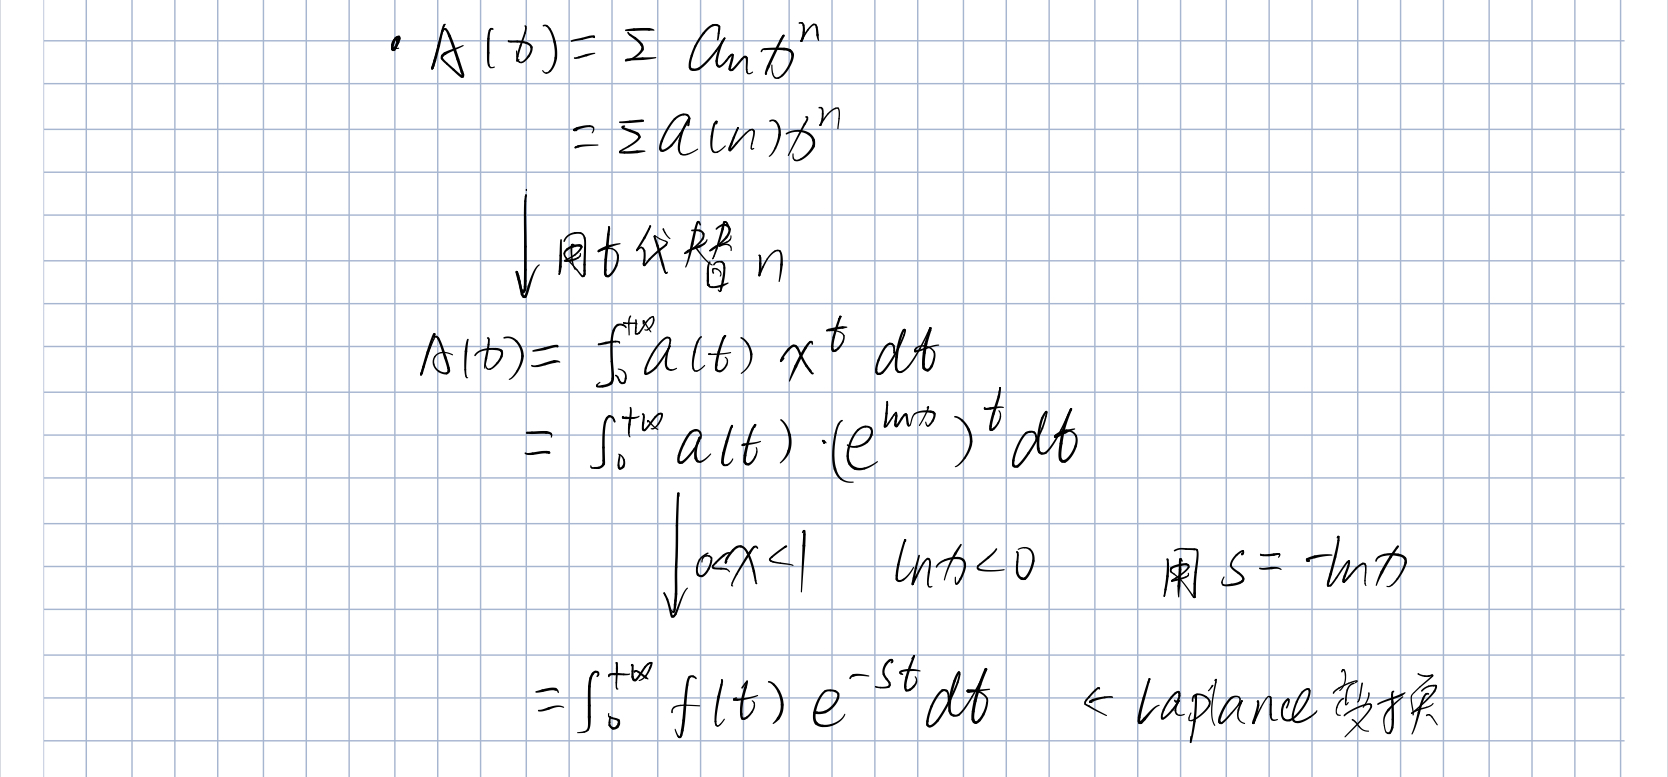 · A(x) = Σ aₙxⁿ
= Σ a(n)xⁿ
↓ 用t代替n
A(x) = ∫₀^{+∞} a(t) x^t dt
= ∫₀^{+∞} a(t) · (e^{lnx})^t dt
↓ 0<x<1 lnx<0 用 s = -lnx
= ∫₀^{+∞} f(t) e^{-st} dt ← Laplance变换